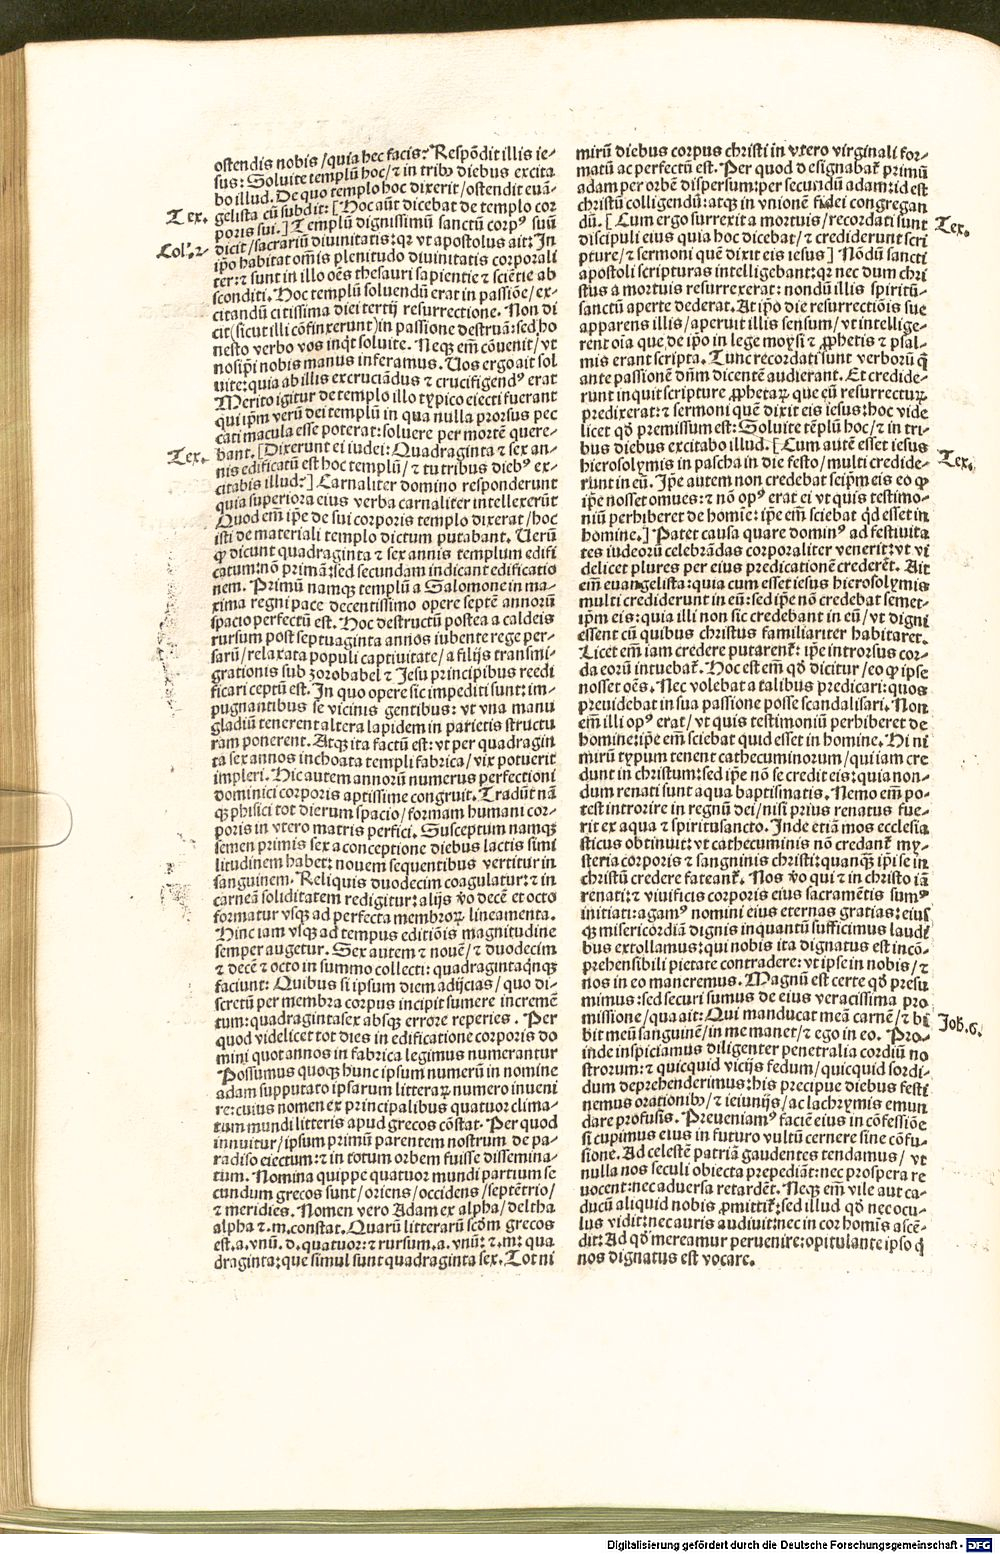 ostendis nobis/quia hec facis? Respõdit illis ie-
sus: Soluite templũ hoc/⁊ in tribꝰ diebus excita
bo illud. De quo templo hoc dixerit/ostendit euã-
Tex. gelista cũ subdit: [Hoc aũt dicebat de templo cor
poris sui.] Templũ dignissimũ sanctũ corpꝰ suũ
Col'.2. dicit/sacrariũ diuinitatis: qꝛ vt apostolus ait: In
ip̃o habitat om̃is plenitudo diuinitatis corporali
ter: ⁊ sunt in illo oẽs thesauri sapientie ⁊ sciẽtie ab
sconditi. Hoc templũ soluendũ erat in passiõe/ex-
citandũ citissima diei tertij resurrectione. Non di
cit (sicut illi cõfinxerunt) in passione destruã: sed ho
nesto verbo vos inqͥt soluite. Neqꝫ em̃ cõuenit/vt
nosip̃i nobis manus inferamus. Uos ergo ait sol
uite: quia ab illis excruciãdus ⁊ crucifigendꝰ erat
Merito igitur de templo illo typico eiecti fuerant
qui ip̃m verũ dei templũ in qua nulla prorsus pec
cati macula esse poterat: soluere per mortẽ quere-
Tex. bant. [Dixerunt ei iudei: Quadraginta ⁊ sex an-
nis edificatũ est hoc templũ/⁊ tu tribus diebꝰ ex-
citabis illud?] Carnaliter domino responderunt
quia superiora eius verba carnaliter intellexerũt
Quod em̃ ip̃e de sui corporis templo dixerat/hoc
isti de materiali templo dictum putabant. Uerũ
ꝙ dicunt quadraginta ⁊ sex annis templum edifi
catum: nõ primã: sed secundam indicant edificatio
nem. Primũ namqꝫ templũ a Salomone in ma-
xima regni pace decentissimo opere septẽ annorũ
spacio perfectũ est. Hoc destructũ postea a caldeis
rursum post septuaginta annos iubente rege per-
sarũ/relaxata populi captiuitate/a filijs transmi-
grationis sub zorobabel ⁊ Jesu principibus reedi
ficari ceptũ est. In quo opere sic impediti sunt: im-
pugnantibus se vicinis gentibus: vt vna manu
gladiũ tenerent altera lapidem in parietis structu
ram ponerent. Atqꝫ ita factũ est: vt per quadragin
ta sex annos inchoata templi fabrica/vix potuerit
impleri. Hic autem annorũ numerus perfectioni
dominici corporis aptissime congruit. Tradũt nã
qꝫ phisici tot dierum spacio/formam humani cor-
poris in vtero matris perfici. Susceptum namqꝫ
semen primis sex a conceptione diebus lactis simi
litudinem habet: nouem sequentibus vertitur in
sanguinem. Reliquis duodecim coagulatur: ⁊ in
carneã soliditatem redigitur: alijs vo decẽ et octo
formatur vsqꝫ ad perfecta membroꝝ lineamenta.
Hinc iam vsqꝫ ad tempus editiõis magnitudine
semper augetur. Sex autem ⁊ nouẽ/⁊ duodecim
⁊ decẽ ⁊ octo in summo collecti: quadraginta qͥnqꝫ
faciunt: Quibus si ipsum diem adijcias/quo di-
scretũ per membra corpus incipit sumere incremẽ
tum: quadragintasex absqꝫ errore reperies. Per
quod videlicet tot dies in edificatione corporis do
mini quot annos in fabrica legimus numerantur
Possumus quoqꝫ hunc ipsum numerũ in nomine
adam supputato ipsarum litteraꝝ numero inueni
re: cuius nomen ex principalibus quatuor clima-
tum mundi litteris apud grecos cõstat. Per quod
innuitur/ipsum primũ parentem nostrum de pa-
radiso eiectum: ⁊ in totum orbem fuisse dissemina-
tum. Nomina quippe quatuor mundi partium se
cundum grecos sunt/oriens/occidens/septẽtrio/
⁊ meridies. Nomen vero Adam ex alpha/deltha
alpha ⁊ .m. constat. Quarũ litterarũ scd̃m grecos
est .a. vnũ. d. quatuor: ⁊ rursum .a. vnũ: ⁊ .m: qua
draginta: que simul sunt quadraginta sex. Tot ni
mirũ diebus corpus christi in vtero virginali for-
matũ ac perfectũ est. Per quod designabat᷑ primũ
adam per orbẽ dispersum: per secundũ adam: id est
christũ colligendũ: atqꝫ in vnionẽ fidei congregan
dũ. [Cum ergo surrexit a mortuis/recordati sunt Tex.
discipuli eius quia hoc dicebat/⁊ crediderunt scri
pture/⁊ sermoni quẽ dixit eis iesus] Nõdũ sancti
apostoli scripturas intelligebant: qꝛ nec dum chri
stus a mortuis resurrexerat: nondũ illis spiritũ-
sanctũ aperte dederat. At ip̃o die resurrectiõis sue
apparens illis/aperuit illis sensum/vt intellige-
rent oĩa que de ip̃o in lege moysi ⁊ ꝓphetis ⁊ psal-
mis erant scripta. Tunc recordati sunt verborũ q̃
ante passionẽ dñm dicentẽ audierant. Et credide-
runt inquit scripture ꝓphetaꝝ que eũ resurrecturꝝ
predixerat: ⁊ sermoni quẽ dixit eis iesus: hoc vide
licet qd̃ premissum est: Soluite tẽplũ hoc/⁊ in tri-
bus diebus excitabo illud. [Cum autẽ esset iesus
hierosolymis in pascha in die festo/multi credide- Tex.
runt in eũ. Ip̃e autem non credebat seip̃m eis eo ꝙ
ip̃e nosset omues: ⁊ nõ opꝰ erat ei vt quis testimo-
niũ perhiberet de homĩe: ip̃e em̃ sciebat qͥd esset in
homine.] Patet causa quare dominꝰ ad festiuita
tes iudeorũ celebrãdas corporaliter venerit: vt vi
delicet plures per eius predicationẽ crederẽt. Ait
em̃ euangelista: quia cum esset iesus hierosolymis
multi crediderunt in eũ: sed ip̃e nõ credebat semet-
ip̃m eis: quia illi non sic credebant in eũ/vt digni
essent cũ quibus christus familiariter habitaret.
Licet em̃ iam credere putarent᷑: ip̃e introrsus cor-
da eorũ intuebat᷑. Hoc est em̃ qd̃ dicitur/eo ꝙ ipse
nosset oẽs. Nec volebat a talibus predicari: quos
preuidebat in sua passione posse scandalisari. Non
em̃ illi opꝰ erat/vt quis testimoniũ perhiberet de
homine: ip̃e em̃ sciebat quid esset in homine. Hi ni
mirũ typum tenent cathecuminorum/qui iam cre
dunt in christum: sed ip̃e nõ se credit eis: quia non-
dum renati sunt aqua baptismatis. Nemo em̃ po-
test introrire in regnũ dei/nisi prius renatus fue-
rit ex aqua ⁊ spiritusancto. Inde etiã mos ecclesia
sticus obtinuit: vt cathecuminis nõ credant᷑ my-
steria corporis ⁊ sangninis christi: quanqꝫ ip̃i se in
christũ credere fateant᷑. Nos vo qui ⁊ in christo iã
renati: ⁊ viuificis corporis eius sacramẽtis sumꝰ
initiati: agamꝰ nomini eius eternas gratias: eius
qꝫ misericordiã dignis inquantũ sufficimus laudi
bus extollamus: qui nobis ita dignatus est incõ-
prehensibili pietate contradere: vt ipse in nobis/⁊
nos in eo maneremus. Magnũ est certe qd̃ presu
mimus: sed securi sumus de eius veracissima pro
missione/qua ait: Qui manducat meã carnẽ/⁊ bi Joh.6.
bit meũ sanguinẽ/in me manet/⁊ ego in eo. Pro-
inde inspiciamus diligenter penetralia cordiũ no
strorum: ⁊ quicquid vicijs fedum/quicquid sordi-
dum deprehenderimus: his precipue diebus festi
nemus orationibꝰ/⁊ ieiunijs/ac lachrymis emun
dare profusis. Preueniamꝰ faciẽ eius in cõfessiõe
si cupimus eius in futuro vultũ cernere sine cõfu-
sione. Ad celestẽ patriã gaudentes tendamus/vt
nulla nos seculi obiecta prepediãt: nec prospera re
uocent: nec aduersa retardẽt. Neqꝫ em̃ vile aut ca-
ducũ aliquid nobis ꝓmittit᷑: sed illud qd̃ nec ocu-
lus vidit: nec auris audiuit: nec in cor homĩs ascẽ-
dit: Ad qd̃ mereamur peruenire: opitulante ipso q̃
nos dignatus est vocare.
Digitalisierung gefördert durch die Deutsche Forschungsgemeinschaft - DFG